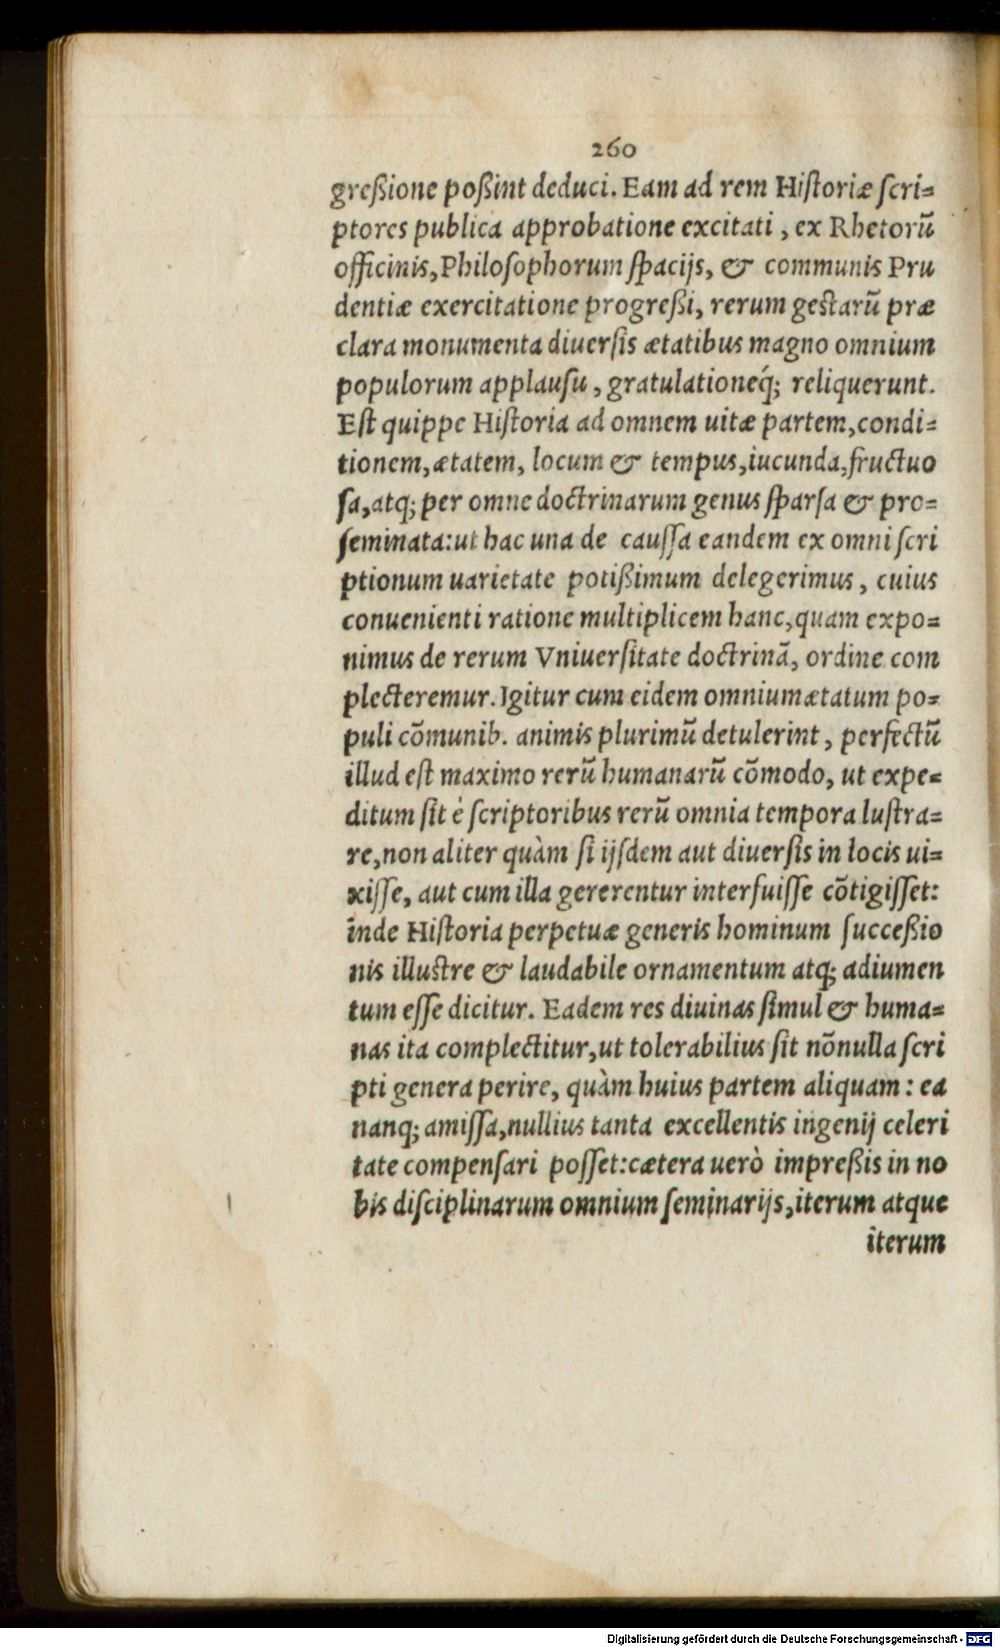 260
greßione poßint deduci. Eam ad rem Hiſtoriæ ſcri=
ptores publica approbatione excitati, ex Rhetorũ
officinis, Philoſophorum ſpacijs, & communis Pru
dentiæ exercitatione progreßi, rerum geſtarũ præ
clara monumenta diuerſis ætatibus magno omnium
populorum applauſu, gratulationeq́; reliquerunt.
Eſt quippe Hiſtoria ad omnem uitæ partem, condi=
tionem, ætatem, locum & tempus, iucunda, fructuo
ſa, atq; per omne doctrinarum genus ſparſa & pro=
ſeminata: ut hac una de cauſſa eandem ex omni ſcri
ptionum uarietate potißimum delegerimus, cuius
conuenienti ratione multiplicem hanc, quam expo=
nimus de rerum Vniuerſitate doctrinã, ordine com
plecteremur. Igitur cum eidem omnium ætatum po=
puli cõmunib. animis plurimũ detulerint, perfectũ
illud eſt maximo rerũ humanarũ cõmodo, ut expe=
ditum ſit è ſcriptoribus rerũ omnia tempora luſtra=
re, non aliter quàm ſi ijſdem aut diuerſis in locis ui=
xiſſe, aut cum illa gererentur interfuiſſe cõtigiſſet:
inde Hiſtoria perpetuæ generis hominum ſucceßio
nis illuſtre & laudabile ornamentum atq; adiumen
tum eſſe dicitur. Eadem res diuinas ſimul & huma=
nas ita complectitur, ut tolerabilius ſit nõnulla ſcri
pti genera perire, quàm huius partem aliquam: ea
nanq; amiſſa, nullius tanta excellentis ingenij celeri
tate compenſari poſſet: cætera uerò impreßis in no
bis diſciplinarum omnium ſeminarijs, iterum atque
iterum
Digitalisierung gefördert durch die Deutsche Forschungsgemeinschaft - DFG